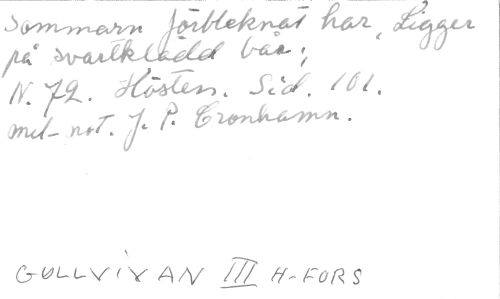 Sommarn förbleknat har, Ligger
på svartklädd bår;
N. 72. Hösten. Sid. 101.
mel-not. J. P. Cronhamn.
GULLVIVAN III H-FORS